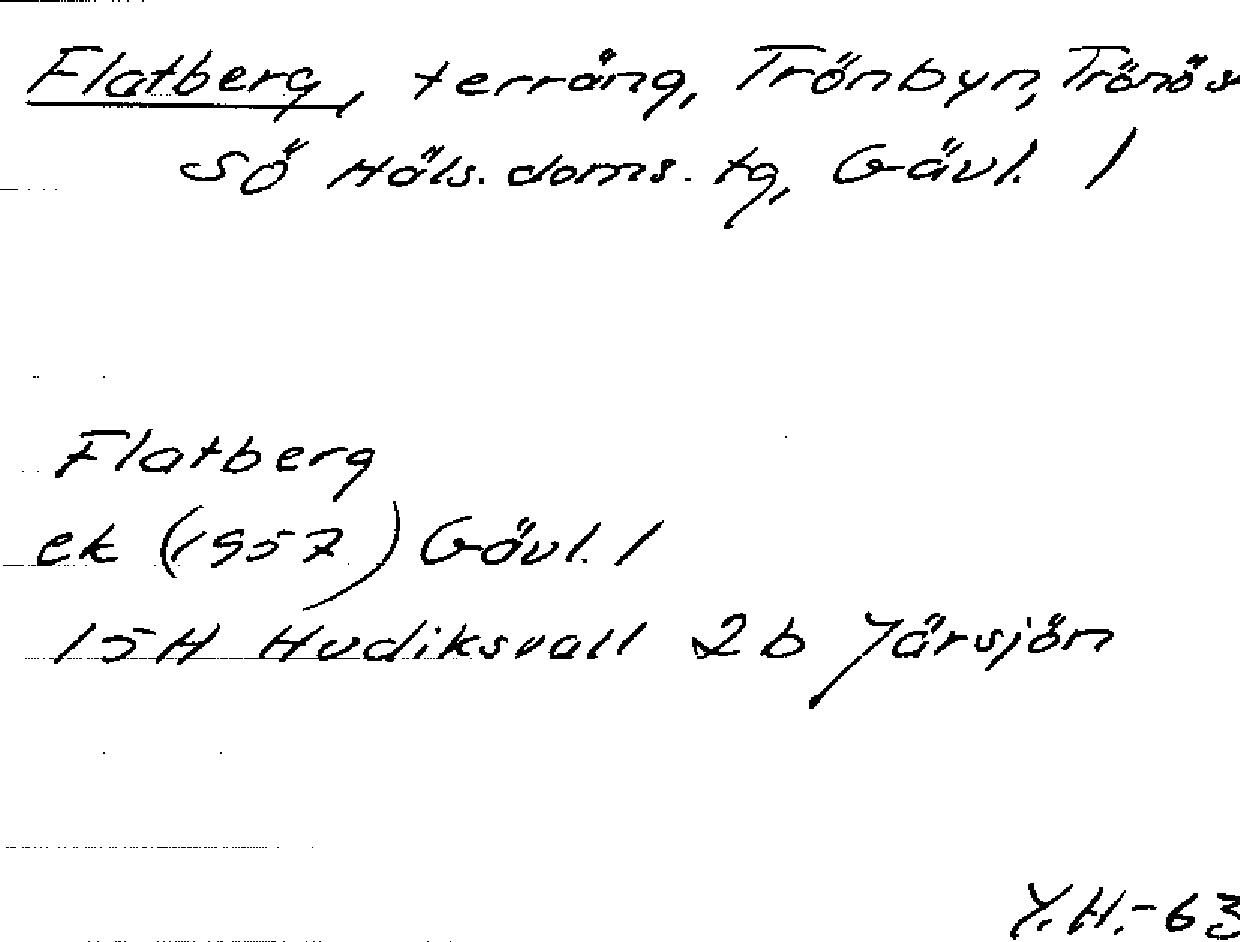 Flatberg, terräng, Trönbyn, Trönö s
Sö Häls. doms. tg, Gävl. l
Flatberg
ek (1957) Gävl. l
15H Hudiksvall 2b Yårsjön
Y.H.-63